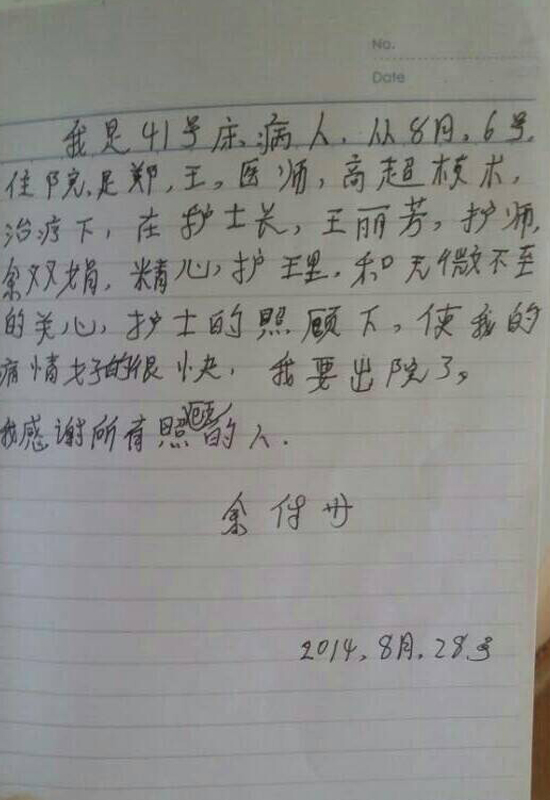 No.
Date
我是41号床,病人,从8月,6号,
住院,是郑,王,医师,高超技术,
治疗下,在护士长,王丽芳,护师,
余双娟,精心,护理,和无微不至
的关心,护士的照顾下,使我的
病情好的很快,我要出院了。
我感谢所有照顾的人.
余付
2014.8月.28号